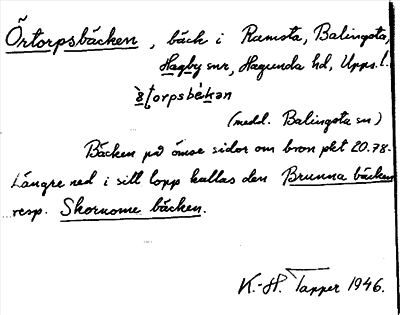 Örtorpsbäcken, bäck i Ramsta, Balingsta,
Hagby snr, Hagunda hd, Upps. l.
(medd. Balingsta sn)
Bäcken på ömse sidor om bron pkt 20.78.
Längre ned i sitt lopp kallas den Brunna bäcken
resp. Skornome bäcken.
K.-H. Tapper 1946.